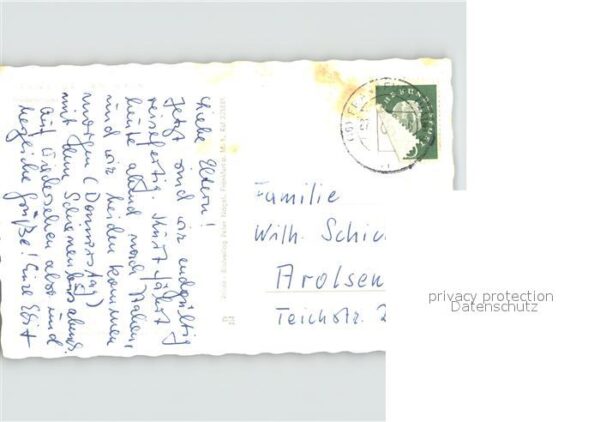 Liebe Eltern!
Jetzt sind wir endgültig
reisefertig. Kurt fährt
heute abend nach Italien,
und wir beiden kommen
morgen (Donnerstag)
mit dem Schienenbus abends.
Auf Wiedersehen also und
herzliche Grüße! Eure
Familie
Wilh. Schic
Arolsen
Teichstr. 2
privacy protection
Datenschutz